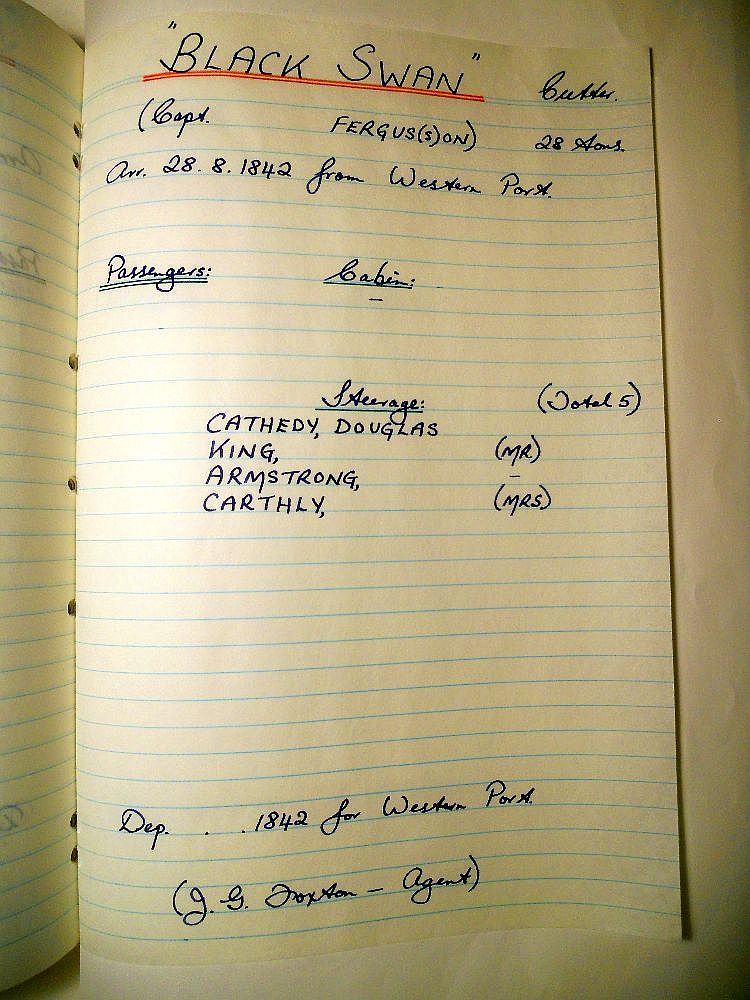 "BLACK SWAN" Cutter.
(Capt. FERGUS(S)ON) 28 tons.
Arr. 28.8.1842 from Western Port.
Passengers: Cabin:
–
Steerage: (Total 5)
CATHEDY, DOUGLAS
KING, (MR)
ARMSTRONG, –
CARTHLY, (MRS)
Dep. . .1842 for Western Port.
(J. G. Foxton – Agent)